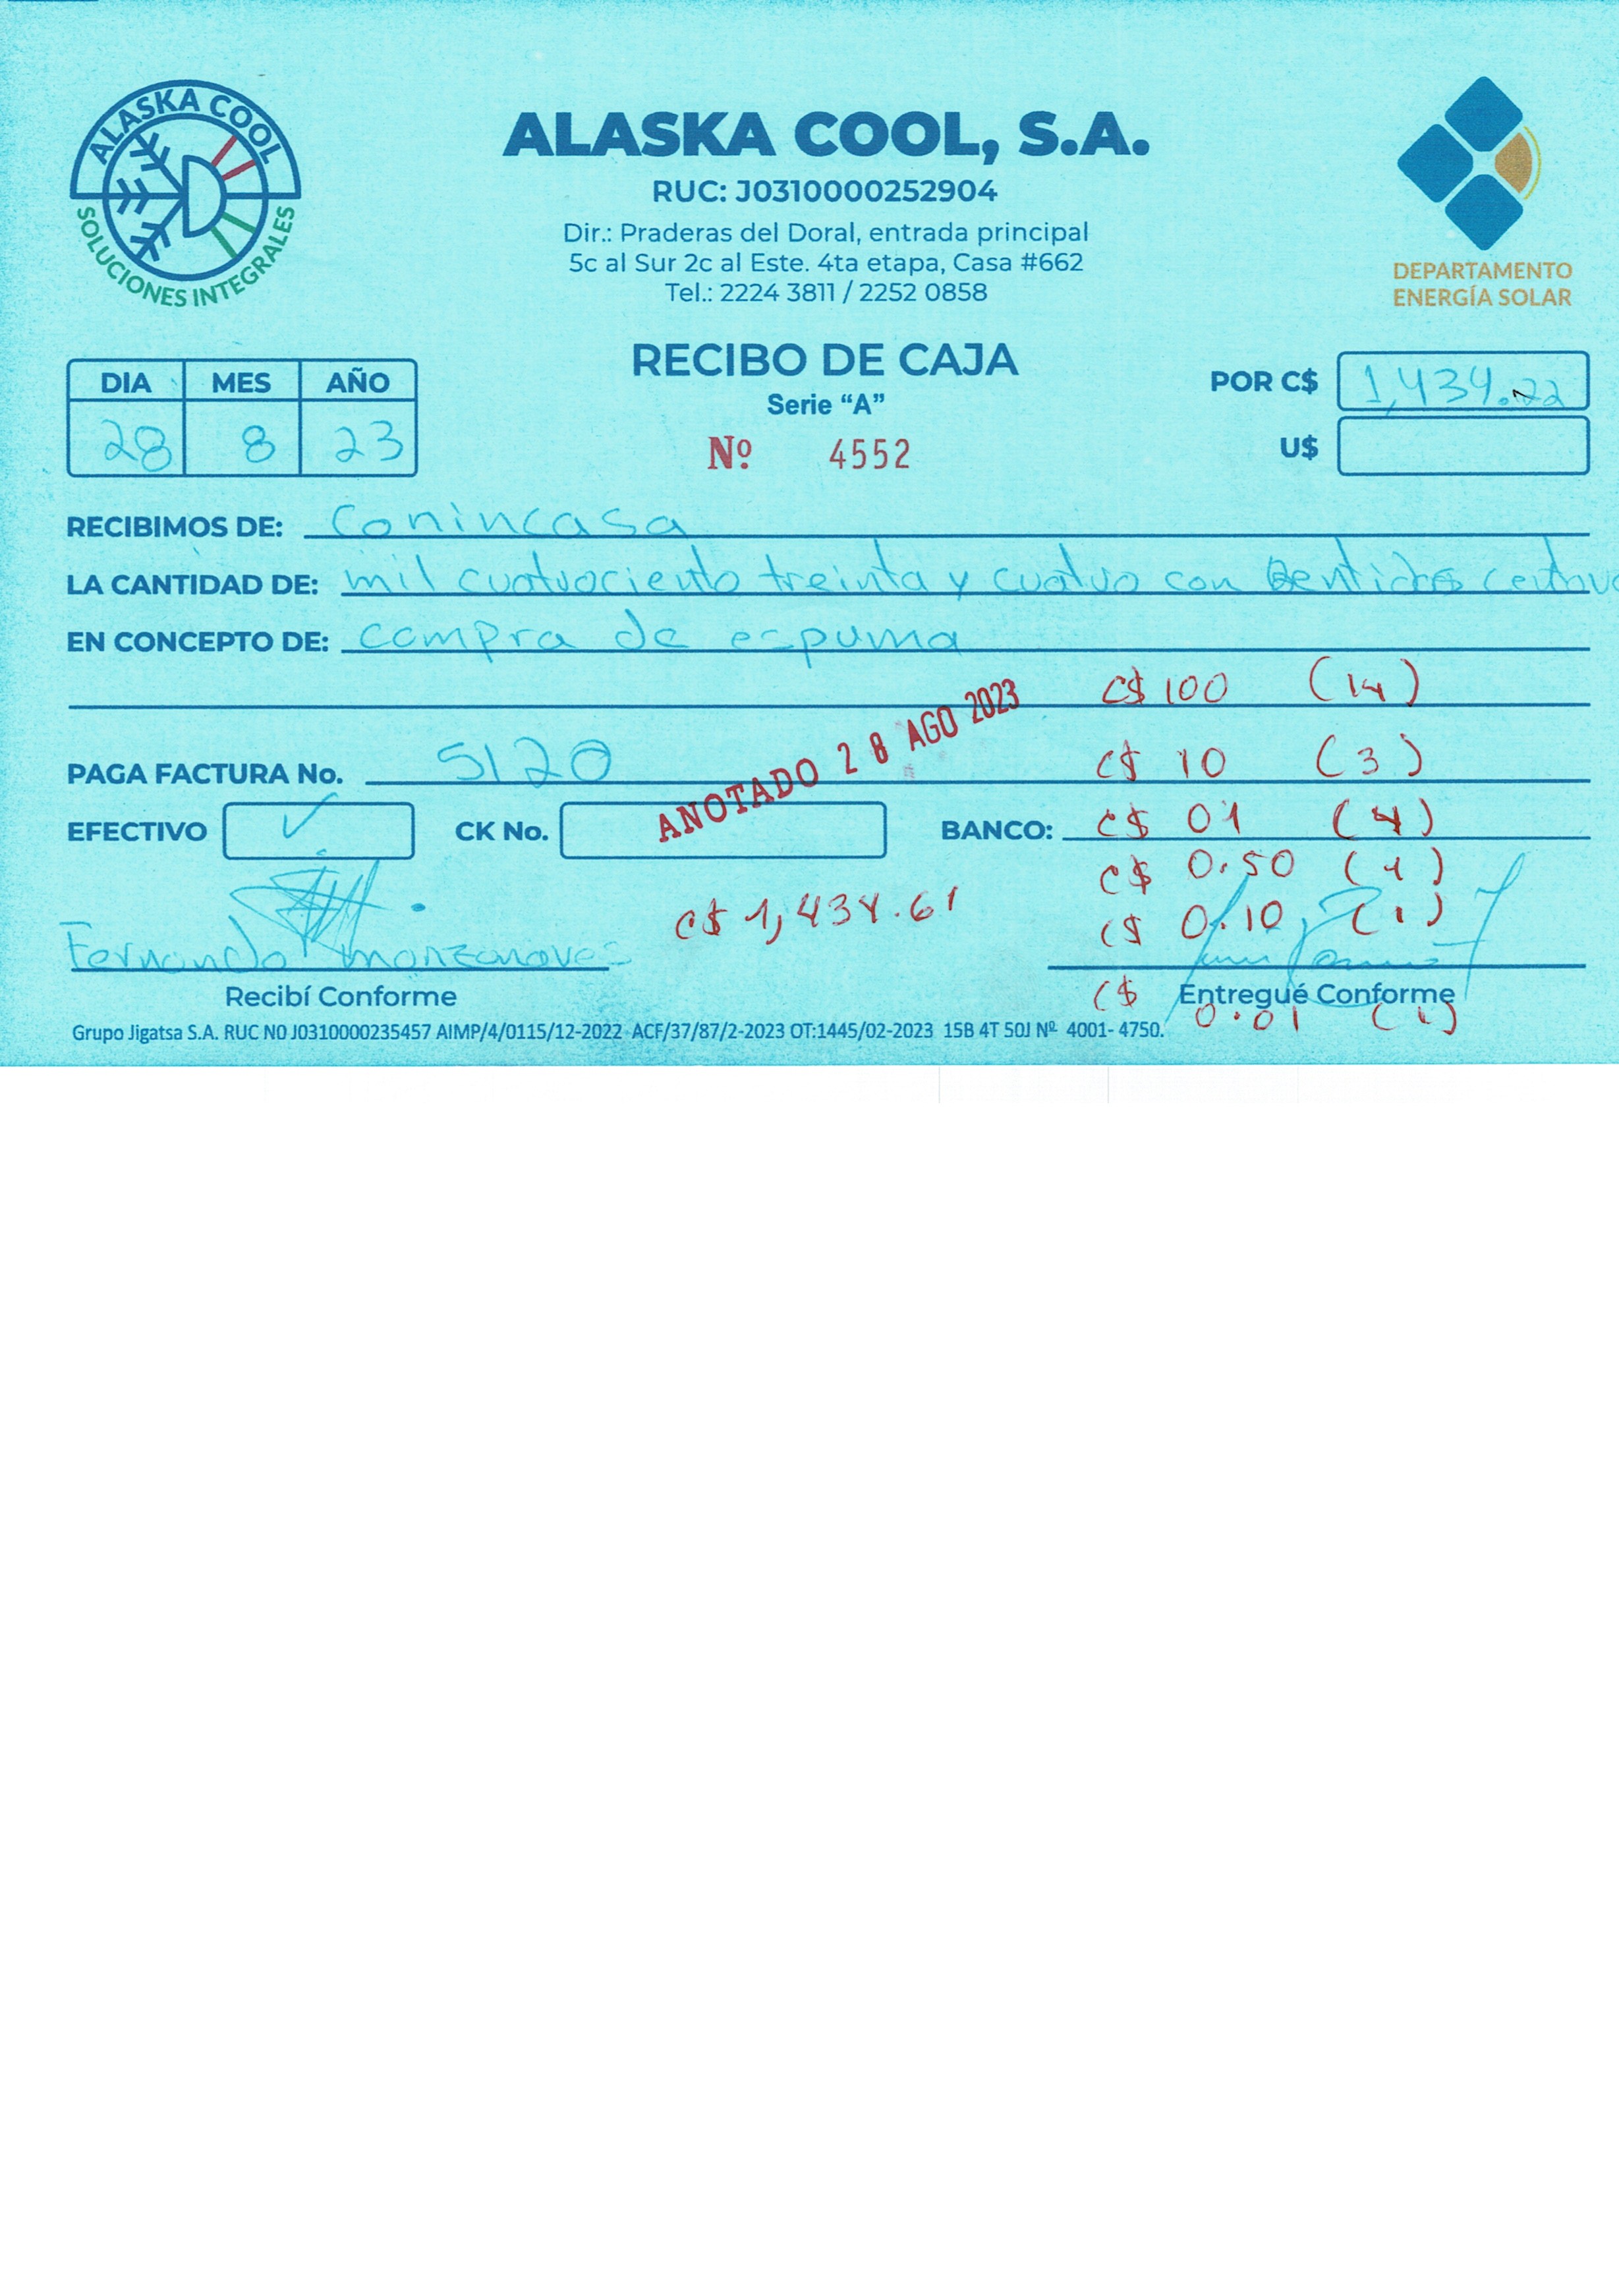 ALASKA COOL
SOLUCIONES INTEGRALES
ALASKA COOL, S.A.
RUC: J0310000252904
Dir.: Praderas del Doral, entrada principal
5c al Sur 2c al Este. 4ta etapa, Casa #662
Tel.: 2224 3811 / 2252 0858
DEPARTAMENTO
ENERGÍA SOLAR
RECIBO DE CAJA
Serie “A”
Nº 4552
DIA MES AÑO
28 8 23
POR C$ 1,434.22
U$
RECIBIMOS DE: Conincasa
LA CANTIDAD DE: mil cuatrociento treinta y cuatro con
EN CONCEPTO DE: compra de espuma
C$ 100 (14)
PAGA FACTURA No. 5120
C$ 10 (3)
ANOTADO 28 AGO 2023
EFECTIVO ✓ CK No. BANCO: C$ 01 (4)
C$ 0.50 (1)
C$ 1,434.61
C$ 0.10 (1)
Fernando manzanares
Recibí Conforme
Entregué Conforme
C$ 0.01 (1)
Grupo Jigatsa S.A. RUC N0 J0310000235457 AIMP/4/0115/12-2022 ACF/37/87/2-2023 OT:1445/02-2023 15B 4T 50J Nº 4001- 4750.